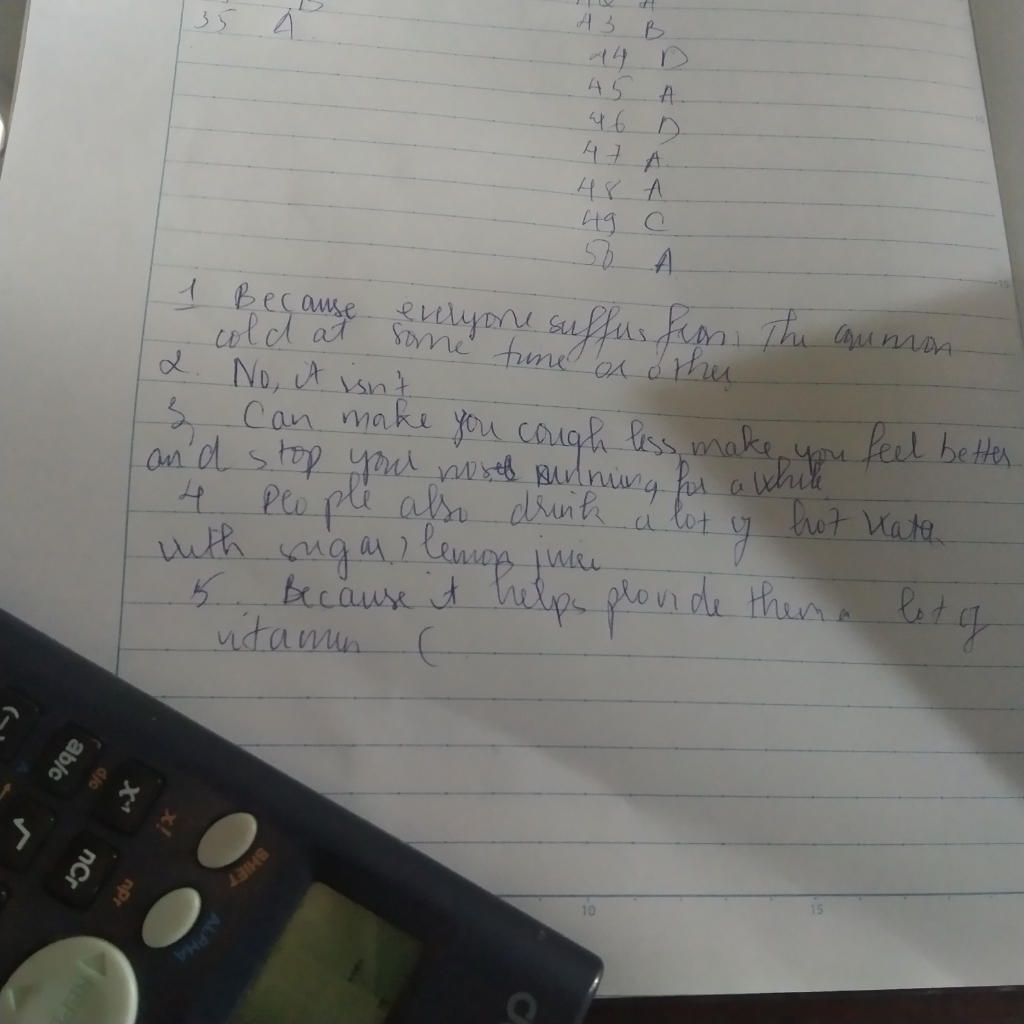 35 A
43 B
44 D
45 A
46 D
47 A
48 A
49 C
50 A
1 Because everyone suffers from the common
cold at some time or other
2. No, it isn't
3, Can make you cough less, make you feel better
and stop your nose running for a while
4 People also drink a lot of hot water
with sugar, lemon juice
5. Because it helps provide them a lot of
vitamin C
10 15
SHIFT
ALPHA
x!
x-1
nCr
nPr
ab/c
d/c
(-)
√